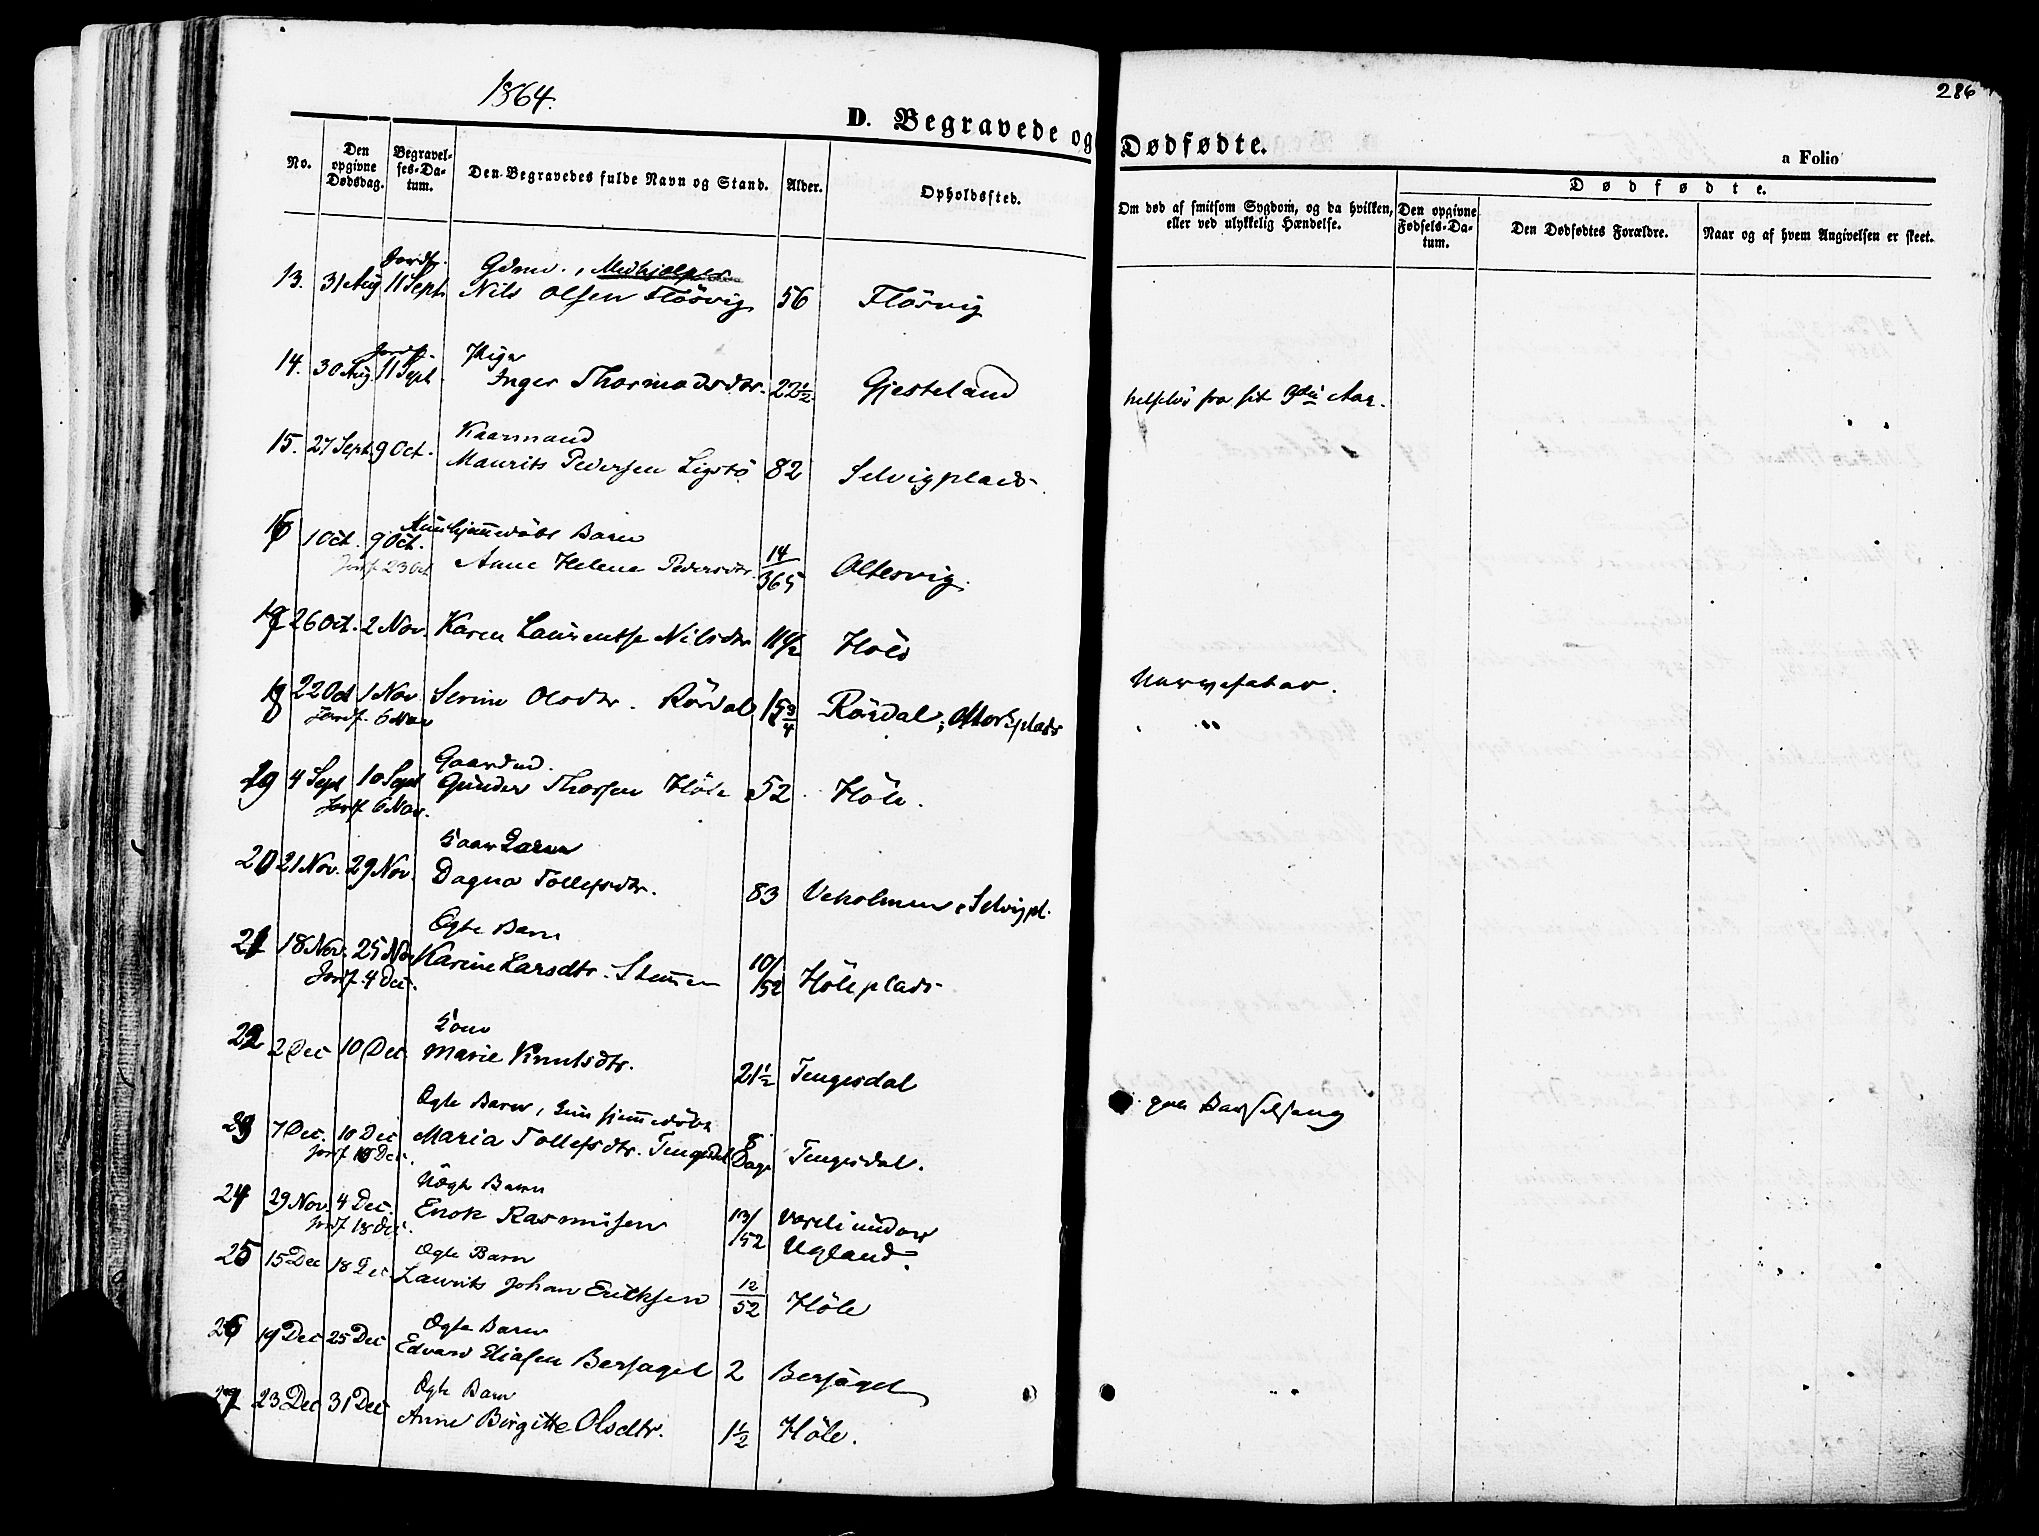 1864.
286
D. Begravede og Dødfødte.
a Folio
No.
Den opgivne Dødsdag.
Begravelses-Datum.
Den Begravedes fulde Navn og Stand.
Alder.
Opholdssted.
Om død af smitsom Sygdom, og da hvilken, eller ved ulykkelig Hændelse.
Dødfødte.
Den opgivne Fødsels-Datum.
Den Dødfødtes Forældre.
Naar og af hvem Angivelsen er skeet.
Jordf. Gdmd., Medhjælper
13. 31 Aug 11 Sept. Nils Olsen Flösvig 56 Flösvig
Jordf. Pige
14. 30 Aug 11 Sept Inger Thormodsdtr. 22½ Gjesteland helselös fra sit 9de Aar.
Kaarmand
15. 27 Sept. 9 Oct. Maurits Pedersen Ligstö 82 Selvigplads
hjemedöbt Barn
16 1 Oct. 9 Oct. Anne Helene Pedersdtr. 14/365 Oltesvig.
Jordf. 23 Oct
17 26 Oct. 2 Nov. Karen Lauentse Nilsdtr 11½ Höle
18 22 Oct 1 Nov Serine Olsdtr. Rördal 15¾ Rördal, Morkplads Nervefeber.
Jordf. 6 Nov "
Gaardmd.
19 4 Sept 10 Sept Gunder Thorsen Höle 52 Höle.
Jordf. 6 Nov.
20 21 Nov. 29 Nov. Dagna Tollefsdtr. 83 Veholmen, Selvigpl.
Ægte Barn
21 18 Nov. 25 Nov Karine Larsdtr. 10/52 Höleplads
Jordf. 4 Dec.
Kone
22 2 Dec 10 Dec. Marie Knutsdtr. 21½ Tengesdal paa Barselseng
Ægte Barn, kun hjemedöbt
23 7 Dec. 10 Dec Maria Tollefsdtr. Tengesdal 8 Dage Tengesdal.
Jordf. 18 Dec.
Uægte Barn
24 29 Nov. 4 Dec. Enok Rasmussen 13/52 under
Jordf. 18 Dec. Ugland.
Ægte Barn
25 15 Dec 18 Dec Laurits Johan Eriksen 12/52 Höle
Ægte Barn
26 19 Dec 25 Dec Edvard Eliasen Bersagel 2 Bersagel
Ægte Barn
27 23 Dec 31 Dec Anne Birgitte Olsdtr. 1½ Höle.